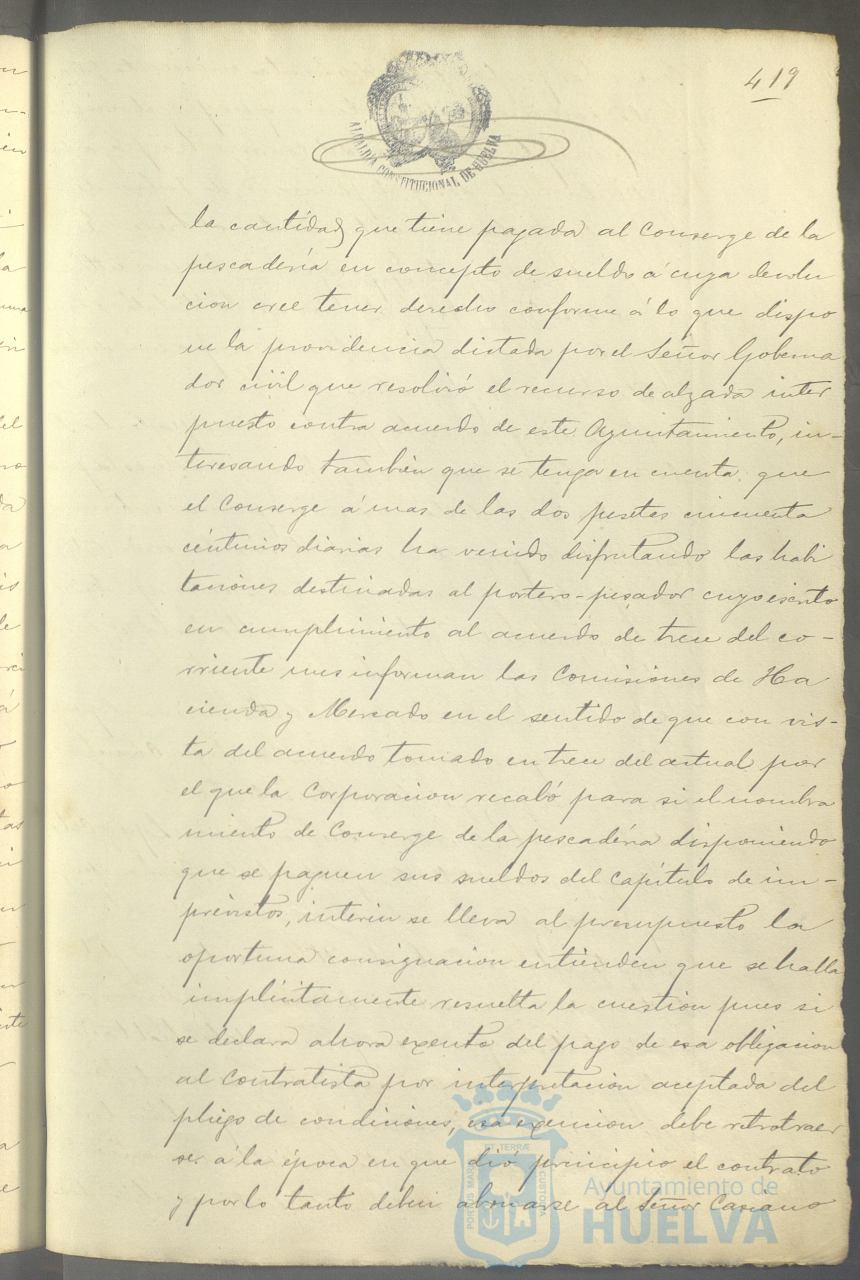 419
ALCALDÍA CONSTITUCIONAL DE HUELVA
la cantidad que tiene pagada al Conserge de la
pescadería en concepto de sueldo á cuya devolu
cion cree tener derecho conforme á lo que dispo
ne la providencia dictada por el Señor Goberna
dor civil que resolvió el recurso de alzada inter
puesto contra acuerdo de este Ayuntamiento, in-
teresando tambien que se tenga en cuenta que
el Conserge á mas de las dos pesetas cincuenta
céntimos diarias ha venido disfrutando las habi
taciones destinadas al portero-pesador cuyo escrito
en cumplimiento al acuerdo de trece del co-
rriente mes informan las Comisiones de Ha
cienda y Mercado en el sentido de que con vis-
ta del acuerdo tomado en trece del actual por
el que la Corporacion recabó para si el nombra
miento de Conserge de la pescadéria disponiendo
que se paguen sus sueldos del capitulo de im-
previstos, interin se lleva al presupuesto la
oportuna consignacion entienden que se halla
implicitamente resuelta la cuestion pues si
se declara ahora exento del pago de esa obligacion
al Contratista por interpretacion aceptada del
pliego de condiciones, esa exencion debe retrotraer
se á la época en que dió principio el contrato
y por lo tanto deben abonarse al Señor Casiano
PORTUS MARIS ET TERRÆ CUSTODIA
Ayuntamiento de
HUELVA